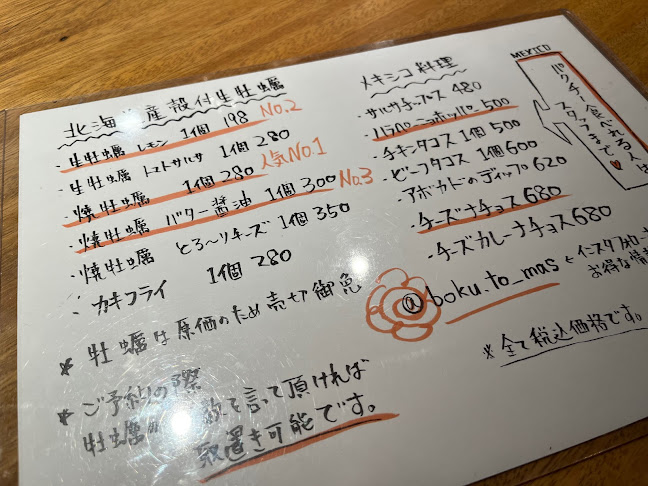 北海道産殻付生牡蠣
・生牡蠣 レモン 1個 198 No.2
・生牡蠣 トマトサルサ 1個 280
・焼牡蠣 1個 280 人気No1
・焼牡蠣 バター醤油 1個 300 No.3
・焼牡蠣 とろ〜りチーズ 1個 350
・カキフライ 1個 280
* 牡蠣は原価のため売切御免
* ご予約の際
牡蠣 数を言って頂ければ
取置き可能です。
メキシコ料理
・サルサチップス 480
・ハラペーニョポッパー 500
・チキンタコス 1個 500
・ビーフタコス 1個 600
・アボカドのディップ 620
・チーズナチョス 680
・チーズカレーナチョス 680
MEXICO
パクチー食べれる人は
スタッフまで♥
@boku.to_mas
お得な情
※全て税込価格です。